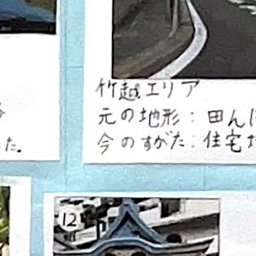 た。
竹越エリア
元の地形：田ん
今のすがた：住宅
12